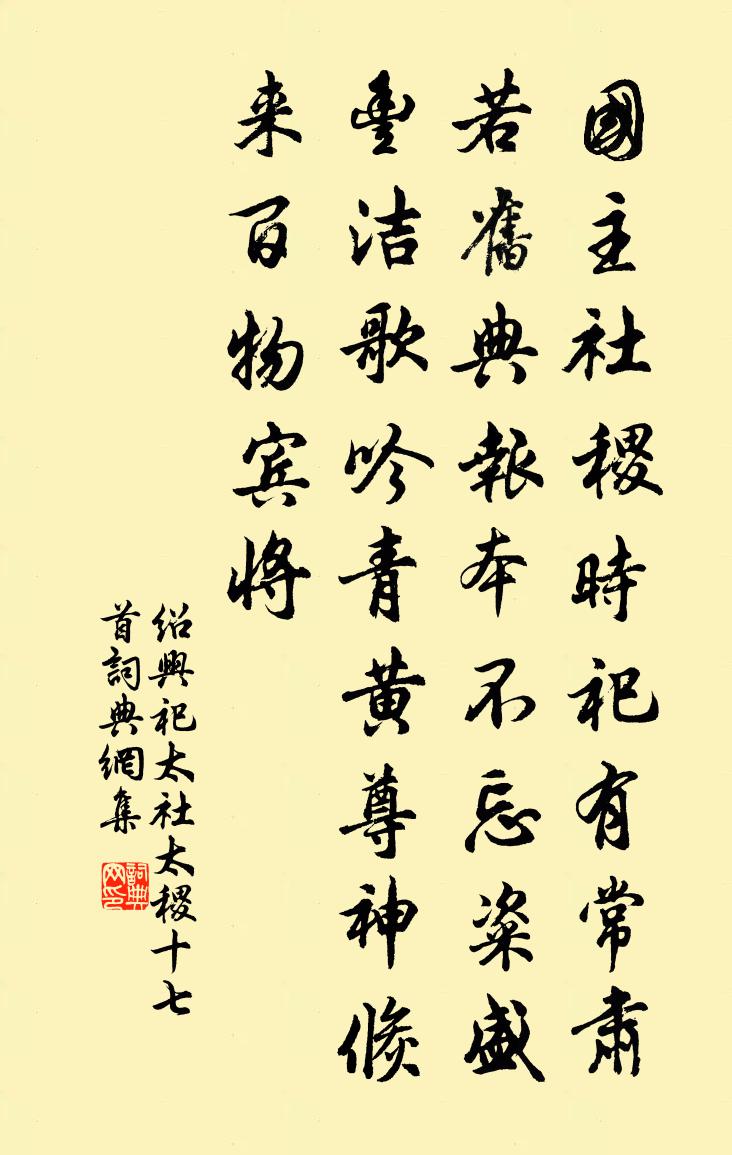 國主社稷時祀有常肅
若舊典報本不忘粢盛
豊洁歌吟青黄尊神倏
来百物宾将
绍興祀太社太稷十七
首詞典網集
詞典
网印